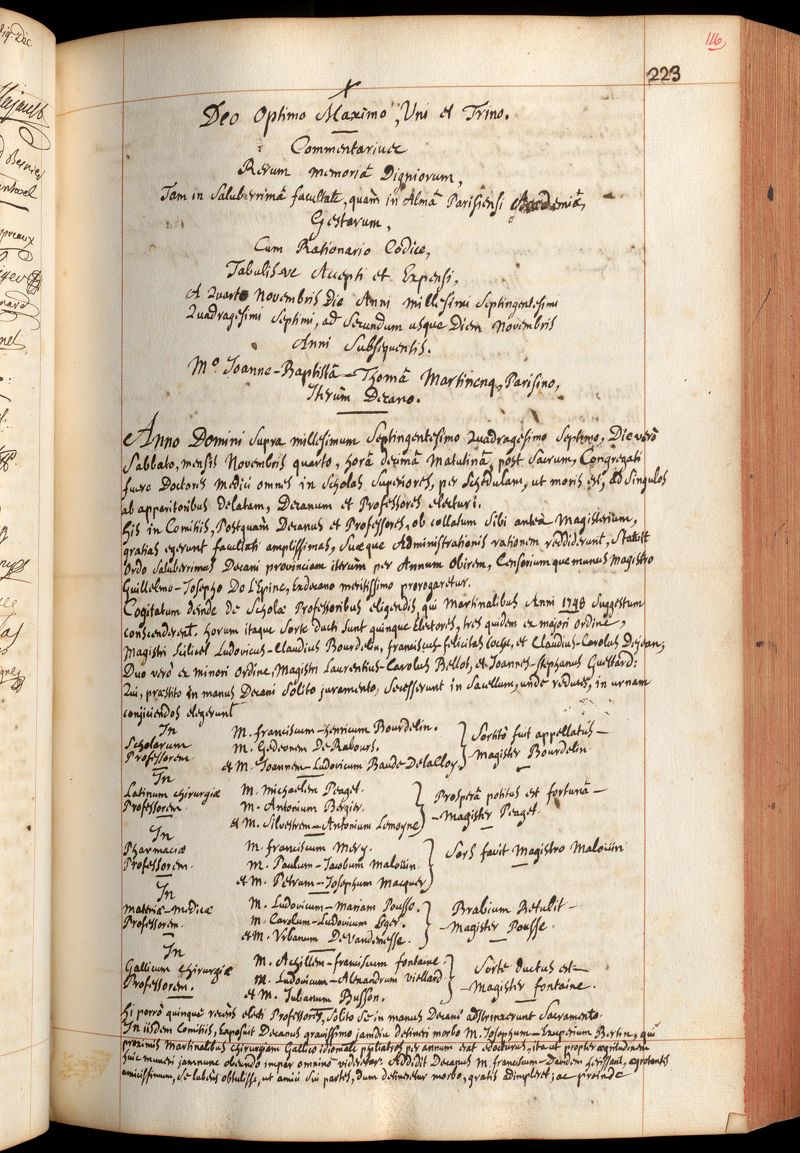 116
223
Deo Optimo Maximo, Uni et Trino.
Commentarius
Rerum memoriâ Digniorum,
Tam in Saluberrimâ facultate, quam in Almâ Parisiensi Academiâ,
Gestarum,
Cum Rationario Codice,
Tabulisve Accepti et Expensi,
A Quarto Novembris Die Anni Millesimi Septingentesimi
Quadragesimi Septimi, ad Secundum usque Diem Novembris
Anni Subsequentis.
Mo. Joanne-Baptistâ-Thomâ Martinenq, Parisino,
Iterùm Decano.
Anno Domini Supra millesimum Septingentesimo Quadragesimo Septimo, Die verò
Sabbato, mensis Novembris quarto, horâ decimâ Matutinâ, post Sacrum, Congregati
fuere Doctores Medici omnes in Scholas Superiores, per Schedulam, ut moris est, ad Singulos
ab apparitoribus Delatam, Decanum et Professores electuri.
his in Comitiis, Postquam Decanus et Professores, ob collatum Sibi anteà Magisterium,
gratias egerunt facultati amplissimas, Suæque Administrationis rationem reddiderunt, Statuit
Ordo Saluberrimus Decani provinciam iterùm per Annum Obirem, Censoriumque munus Magistro
Guillelmo-Josepho De L'Epine, Exdecano meritissimo prorogaretur.
Cogitatum deinde de Scholæ Professoribus eligendis, qui Martinalibus Anni 1748 Suggestum
conscenderent. horum itaque Sorte ducti Sunt quinque Electores, tres quidem ex majori ordine,
Magistri Scilicet Ludovicus-Claudius Bourdelin, franciscus-felicitas Coche, et Claudius-Carolus Dejean;
Duo verò ex minori Ordine, Magistri Laurentius-Carolus Bellot, et Joannes-Stephanus Guettard:
Qui, præstito in manus Decani Solito juramento, Secesserunt in Sacellum, unde reduces, in urnam
conjiciendos elegerunt
In Scholarum Professorem
M. franciscum-henricum Bourdelin.
M. Gedeonem De Rabours.
et M. Joannem-Ludovicum Baude-Delalloy.
Sortitò fuit appellatus
Magister Bourdelin
In Latinum Chirurgiæ Professorem
M. Michaelem Peaget.
M. Antonium Bergier.
et M. Silvestrem-Antonium Lemoyne
Prosperâ potitus est fortunâ
Magister Peaget.
In Pharmaciæ Professorem
M. franciscum Mery.
M. Paulum-Jacobum Maloüin.
et M. Petrum-Josephum Macquer
Sors favit Magistro Maloüin
In materiæ-medicæ Professorem
M. Ludovicum-Mariam Pousse.
M. Carolum-Ludovicum Liger.
et M. Urbanum De Vandenesse.
Brabium Retulit
Magister Pousse.
In Gallicum Chirurgiæ Professorem.
M. Achillem-franciscum fontaine.
M. Ludovicum-Alexandrum Viellard
et M. Julianum Busson.
Sorte ductus est
Magister fontaine.
hi porrò quinque recens electi Professores, Solito Se in manus Decani adstrinxerunt Sacramento.
In iisdem Comitiis, Exposuit Decanus gravissimo jamdiu detineri morbo M. Josephum-Exuperium Bertin, qui
proximis Martinalibus Chirurgiam Gallico idiomate philiatros per annum erat edocturus, ita ut propter ægritudinem
huic muneri jamnunc obeundo impar omnino videretur. Addidit Decanus M. franciscum-Davidem herissant, ægrotantis
amicissimum, Se lubens obtulisse, ut amici Sui partes, dum detineretur morbo, gratis adimpleret; ac proinde